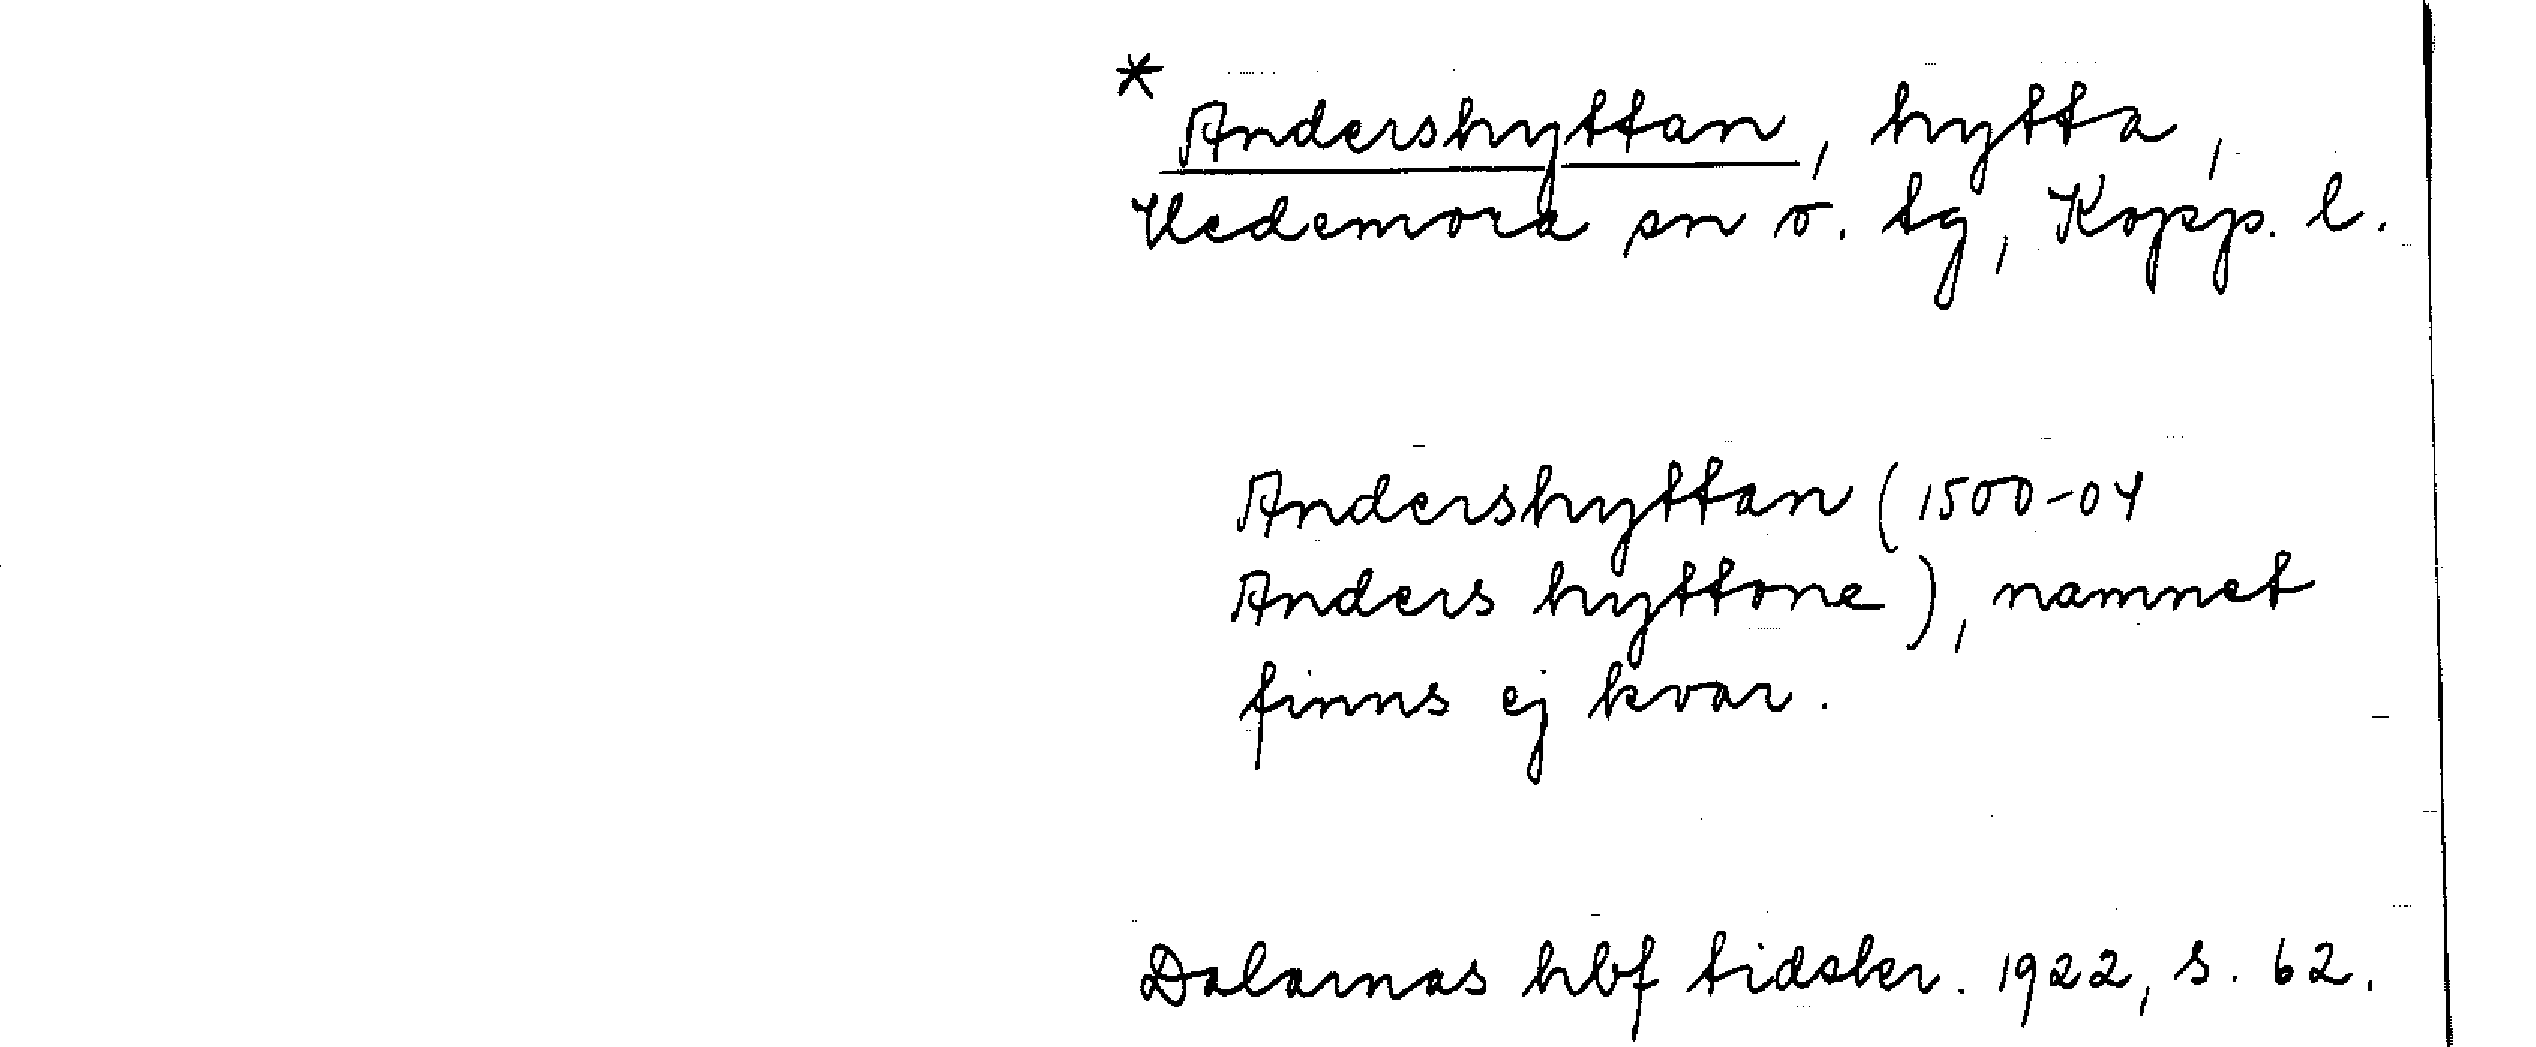 * Andershyttan, hytta,
Hedemora sn o. tg, Kopp. l.
Andershyttan (1500-04
Anders hyttone), namnet
finns ej kvar.
Dalarnas hbf tidskr. 1922, s. 62.